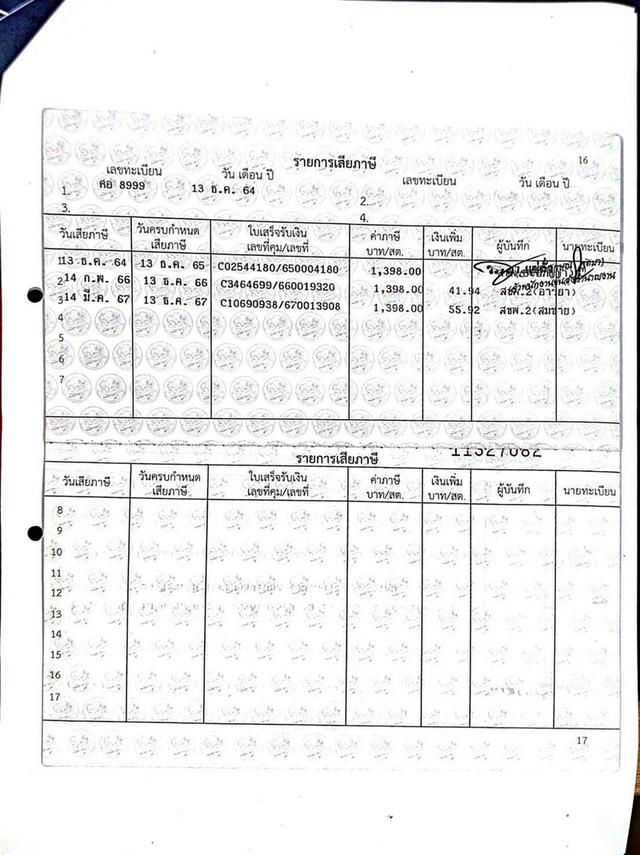 รายการเสียภาษี 16
เลขทะเบียน วัน เดือน ปี เลขทะเบียน วัน เดือน ปี
1. ศอ 8999 13 ธ.ค. 64 2.
3. 4.
วันเสียภาษี วันครบกำหนดเสียภาษี ใบเสร็จรับเงิน เลขที่คุม/เลขที่ ค่าภาษี บาท/สต. เงินเพิ่ม บาท/สต. ผู้บันทึก นายทะเบียน
1 13 ธ.ค. 64 13 ธ.ค. 65 C02544180/650004180 1,398.00
2 14 ก.พ. 66 13 ธ.ค. 66 C3464699/660019320 1,398.00 41.94 สขพ.2(อารยา)
3 14 มี.ค. 67 13 ธ.ค. 67 C10690938/670013908 1,398.00 55.92 สขพ.2(สมชาย)
4
5
6
7
11327082
รายการเสียภาษี
วันเสียภาษี วันครบกำหนดเสียภาษี ใบเสร็จรับเงิน เลขที่คุม/เลขที่ ค่าภาษี บาท/สต. เงินเพิ่ม บาท/สต. ผู้บันทึก นายทะเบียน
8
9
10
11
12
13
14
15
16
17
17